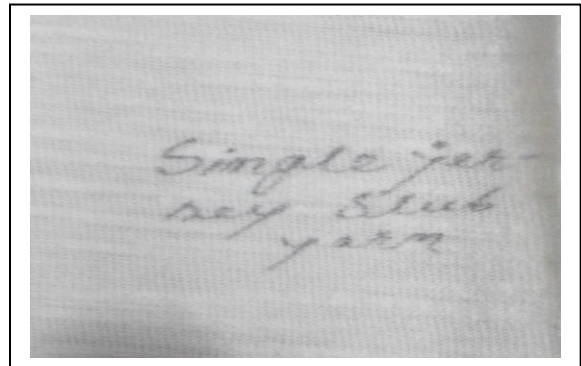 Single jer-
sey Slub
yarn